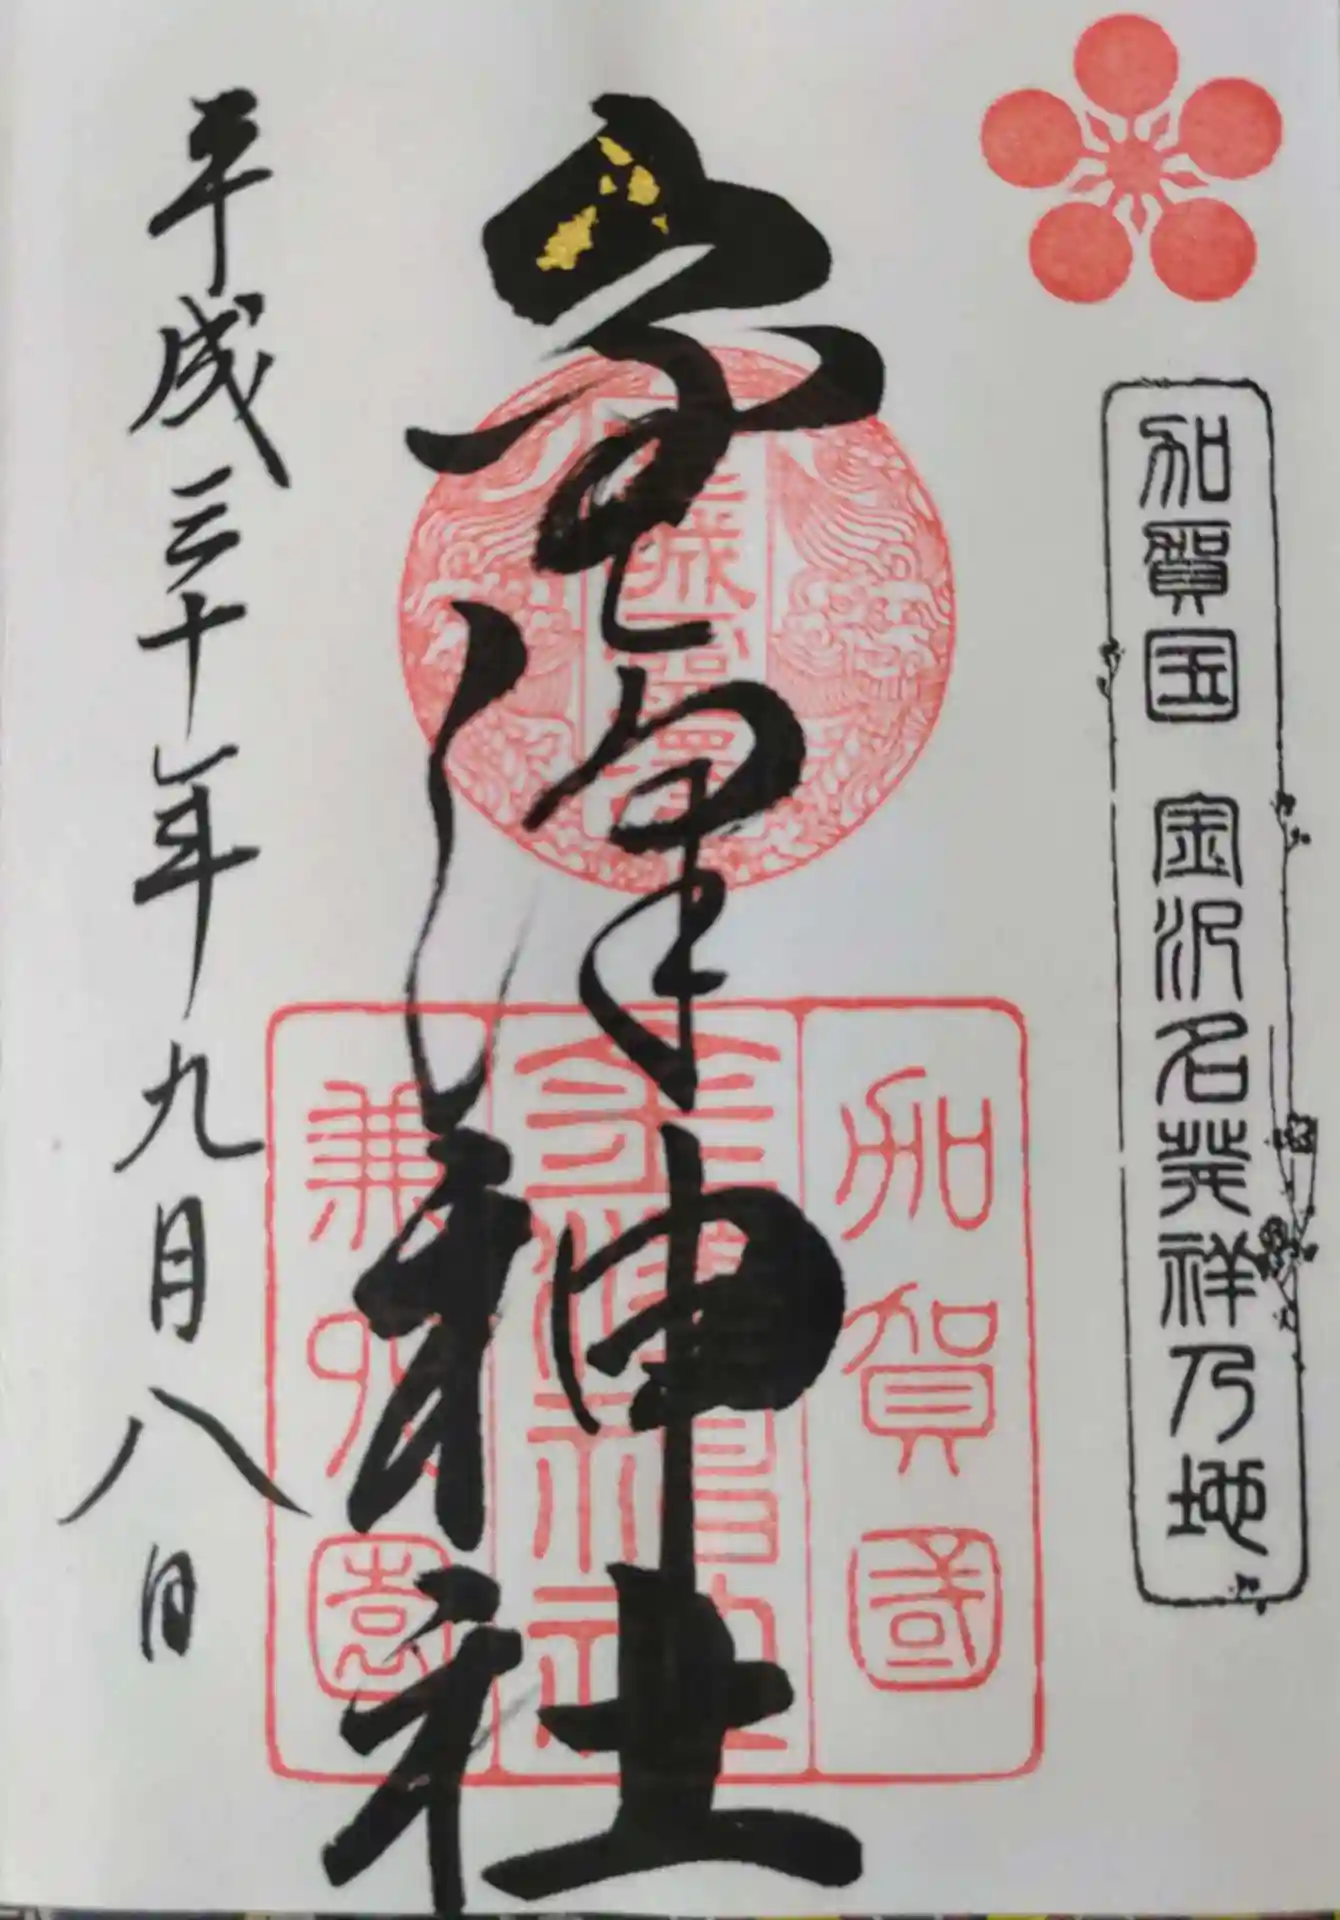 加賀国 金沢名発祥乃地
金澤神社
加賀國
兼六園
平成三十年九月八日